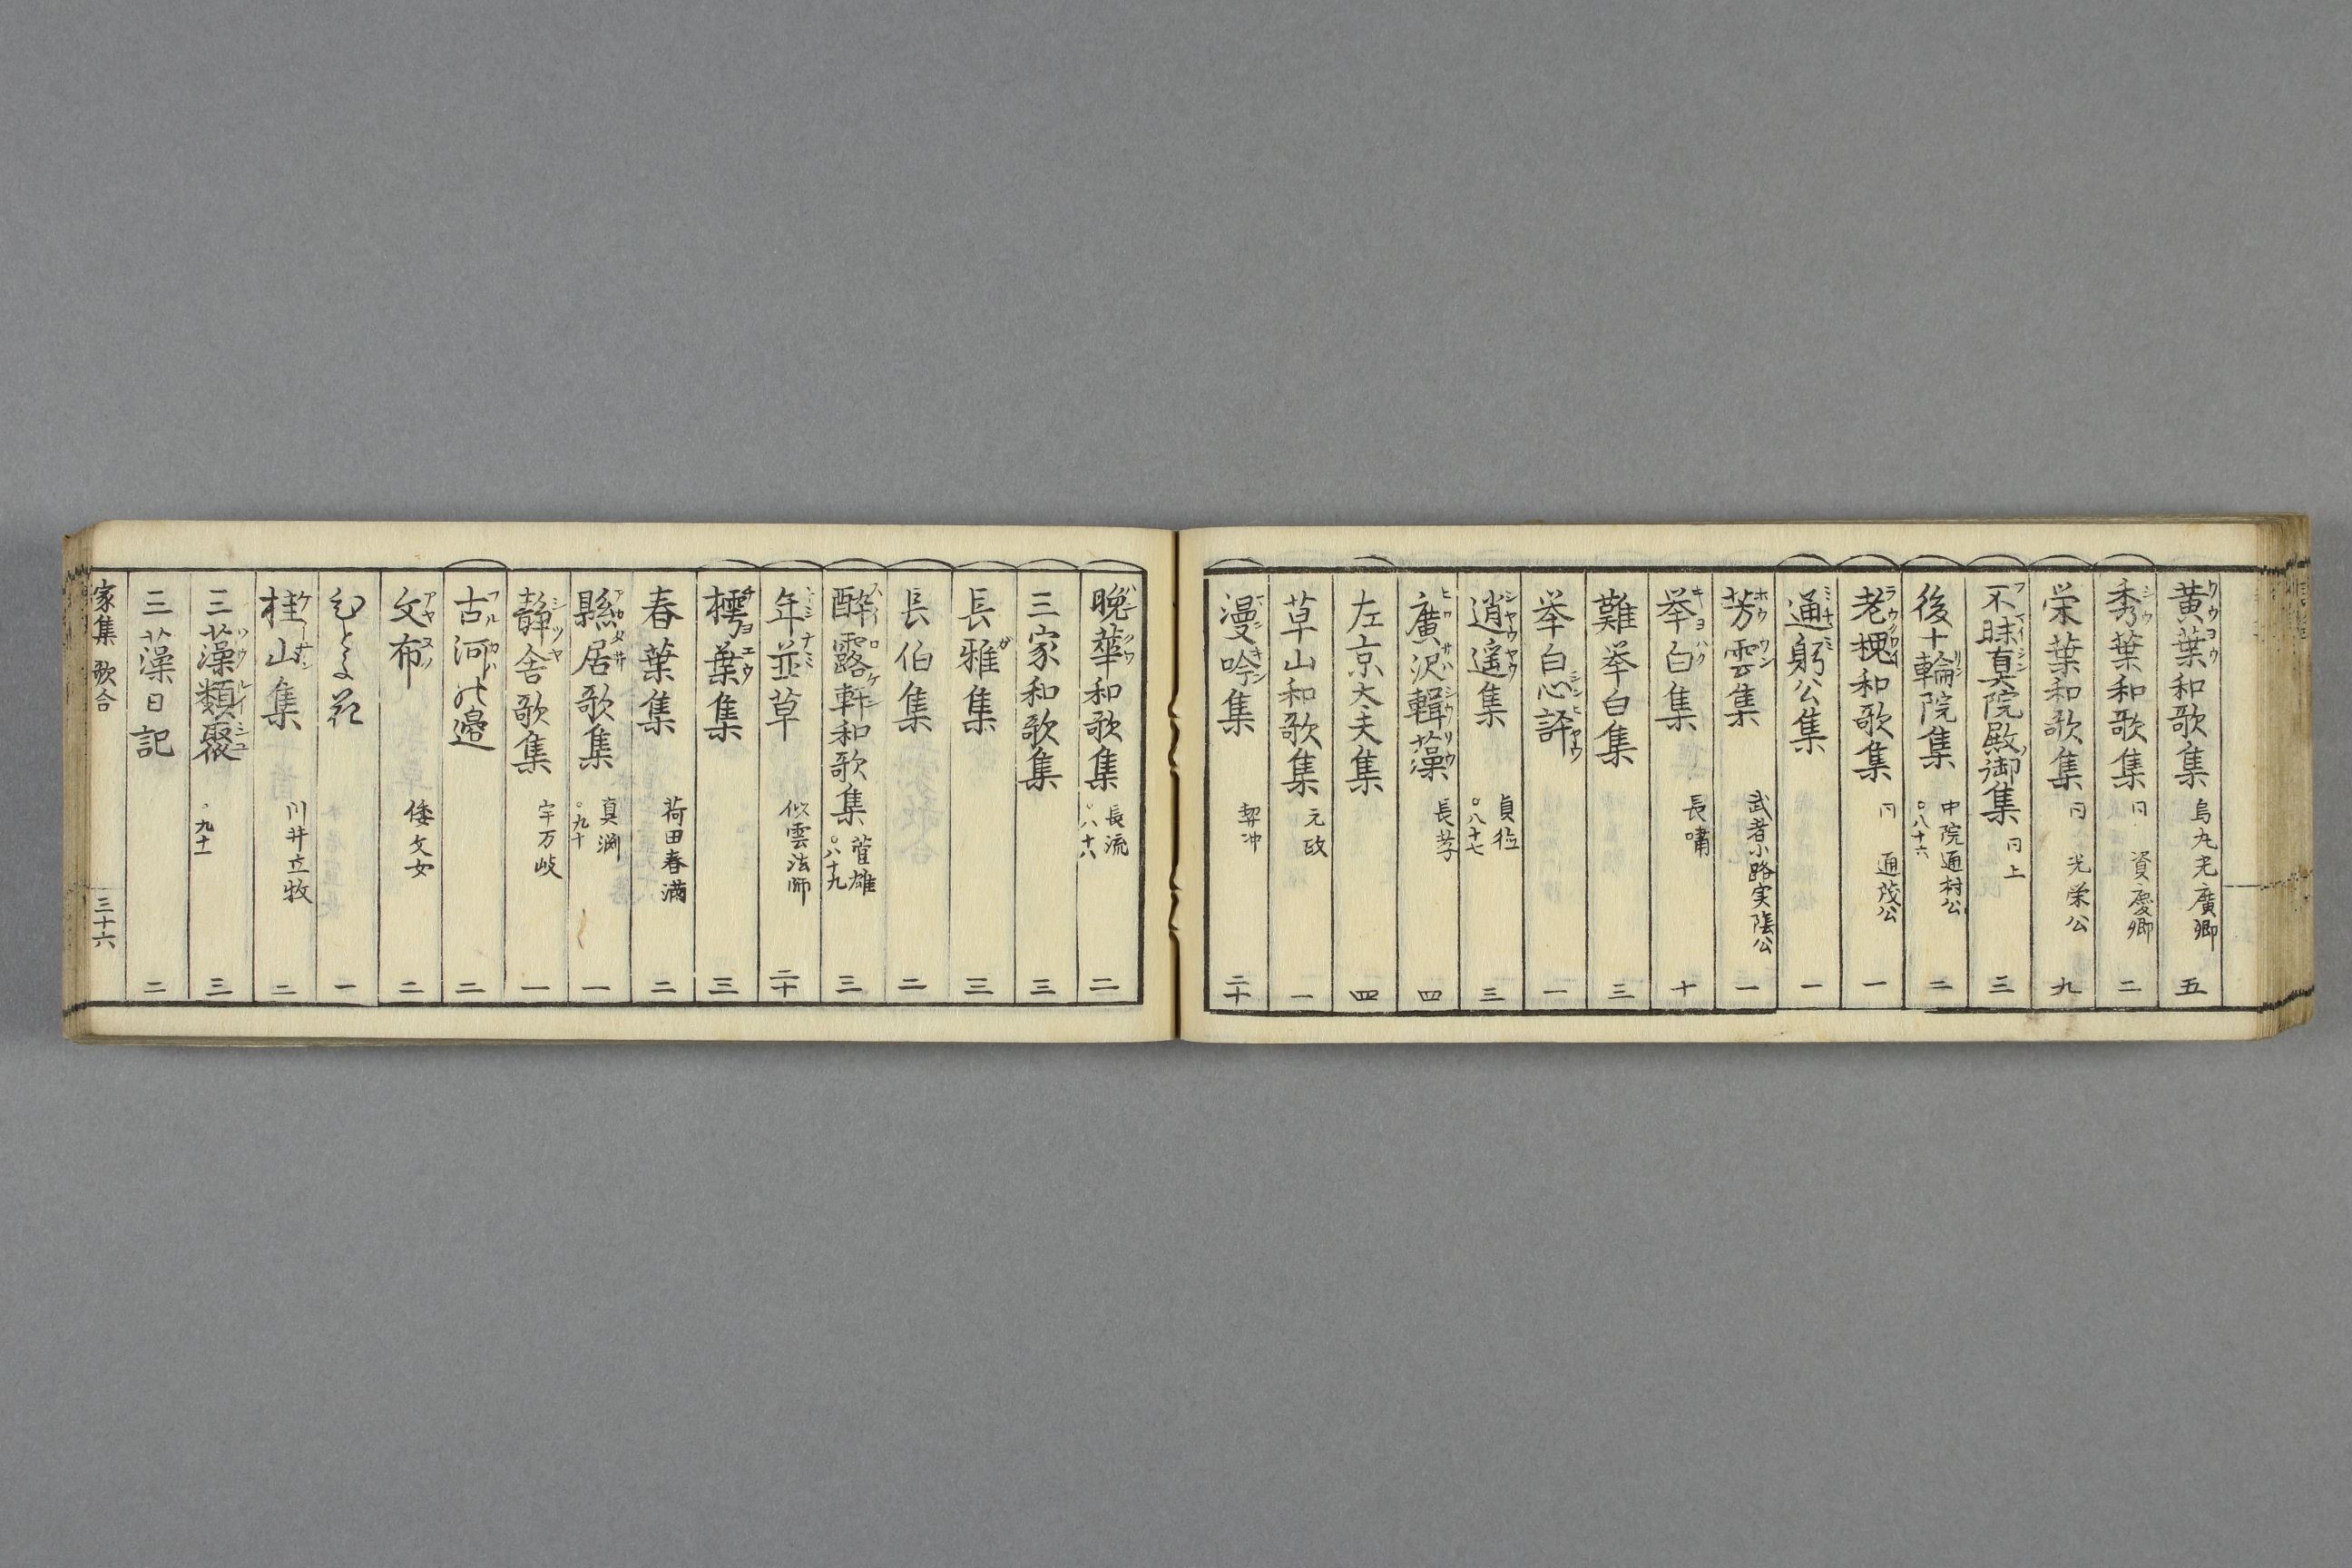 黄葉和歌集 烏丸光廣卿 五
秀葉和歌集 同 資慶卿 二
栄葉和歌集 同 光栄公 九
不昧真院殿御集 同上 三
後十輪院集 中院通村公 〇八十六 二
老槐和歌集 同 通茂公 一
通躬公集 一
芳雲集 武者小路実陰公 一
挙白集 長嘯 十
難挙白集 三
挙白心評 一
逍遥集 貞徳 〇八十七 三
廣沢輯藻 長孝 四
左京大夫集 四
草山和歌集 元政 一
漫吟集 契沖 二十
晩華和歌集 長流 〇八十八 二
三家和歌集 三
長雅集 三
長伯集 二
酔露軒和歌集 菅雄 〇八十九 三
年並草 似雲法師 二十
樗葉集 三
春葉集 荷田春満 二
縣居歌集 真渕 〇九十 一
静舎歌集 宇万岐 一
古河の邉 二
文布 倭文女 二
ひとよ花 一
桂山集 川井立牧 二
三藻類聚 〇九十一 三
三藻日記 二
家集 歌合 三十六